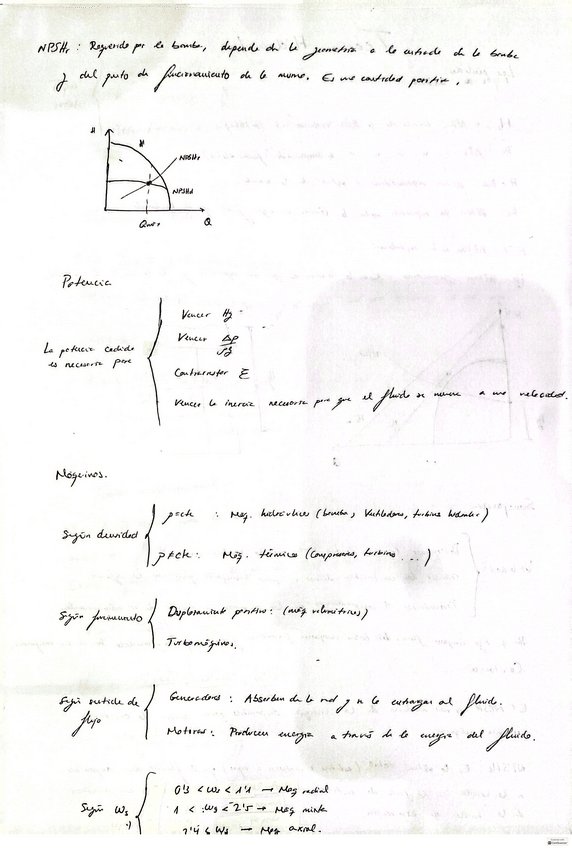 NPSHr : Requerido por la bomba, depende de la geometría a la entrada de la bomba
y del punto de funcionamiento de la misma. Es una cantidad positiva.
H
H
NPSHr
NPSHd
Qmax
Q
Potencia
La potencia cedida
es necesaria para
Vencer Hg
Vencer Δp/ρg
Contrarrestar Σ
Vencer la inercia necesaria para que el fluido se mueva a una velocidad.
Máquinas.
Según densidad
ρ=cte : Maq. hidráulica (bomba, Ventiladores, turbina hidraulic)
ρ≠cte : Máq. térmica (Compresores, turbina ...)
Según funcionamiento
Desplazamiento positivo: (máq volumétricas)
Turbomáquinas.
Según sentido de
flujo
Generadoras : Absorben de la red y se la entregan al fluido.
Motoras : Producen energía a través de la energía del fluido.
Según ωs
0'3 < ωs < 1'1 → Maq radial
1 < ωs < 2'5 → Maq mixta
2'4 ≤ ωs → Maq axial.